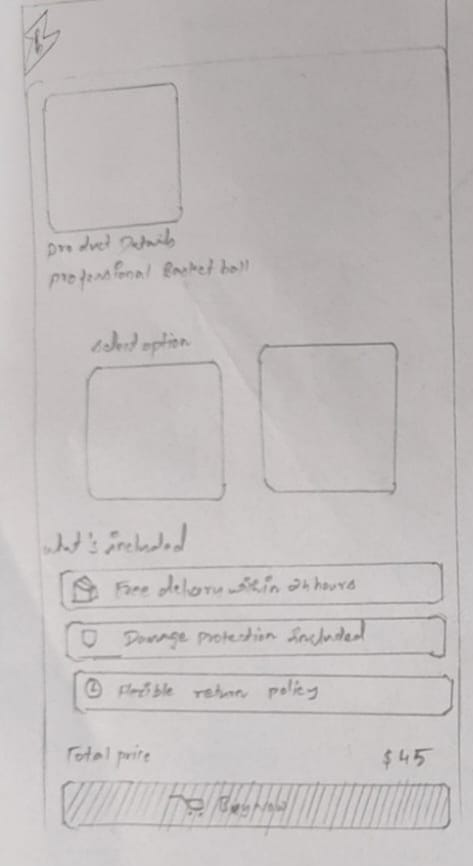 Product Details
professional Basket ball
select option
what's included
Free delivery within 24 hours
Damage protection included
Flexible return policy
Total price $45
Buy Now